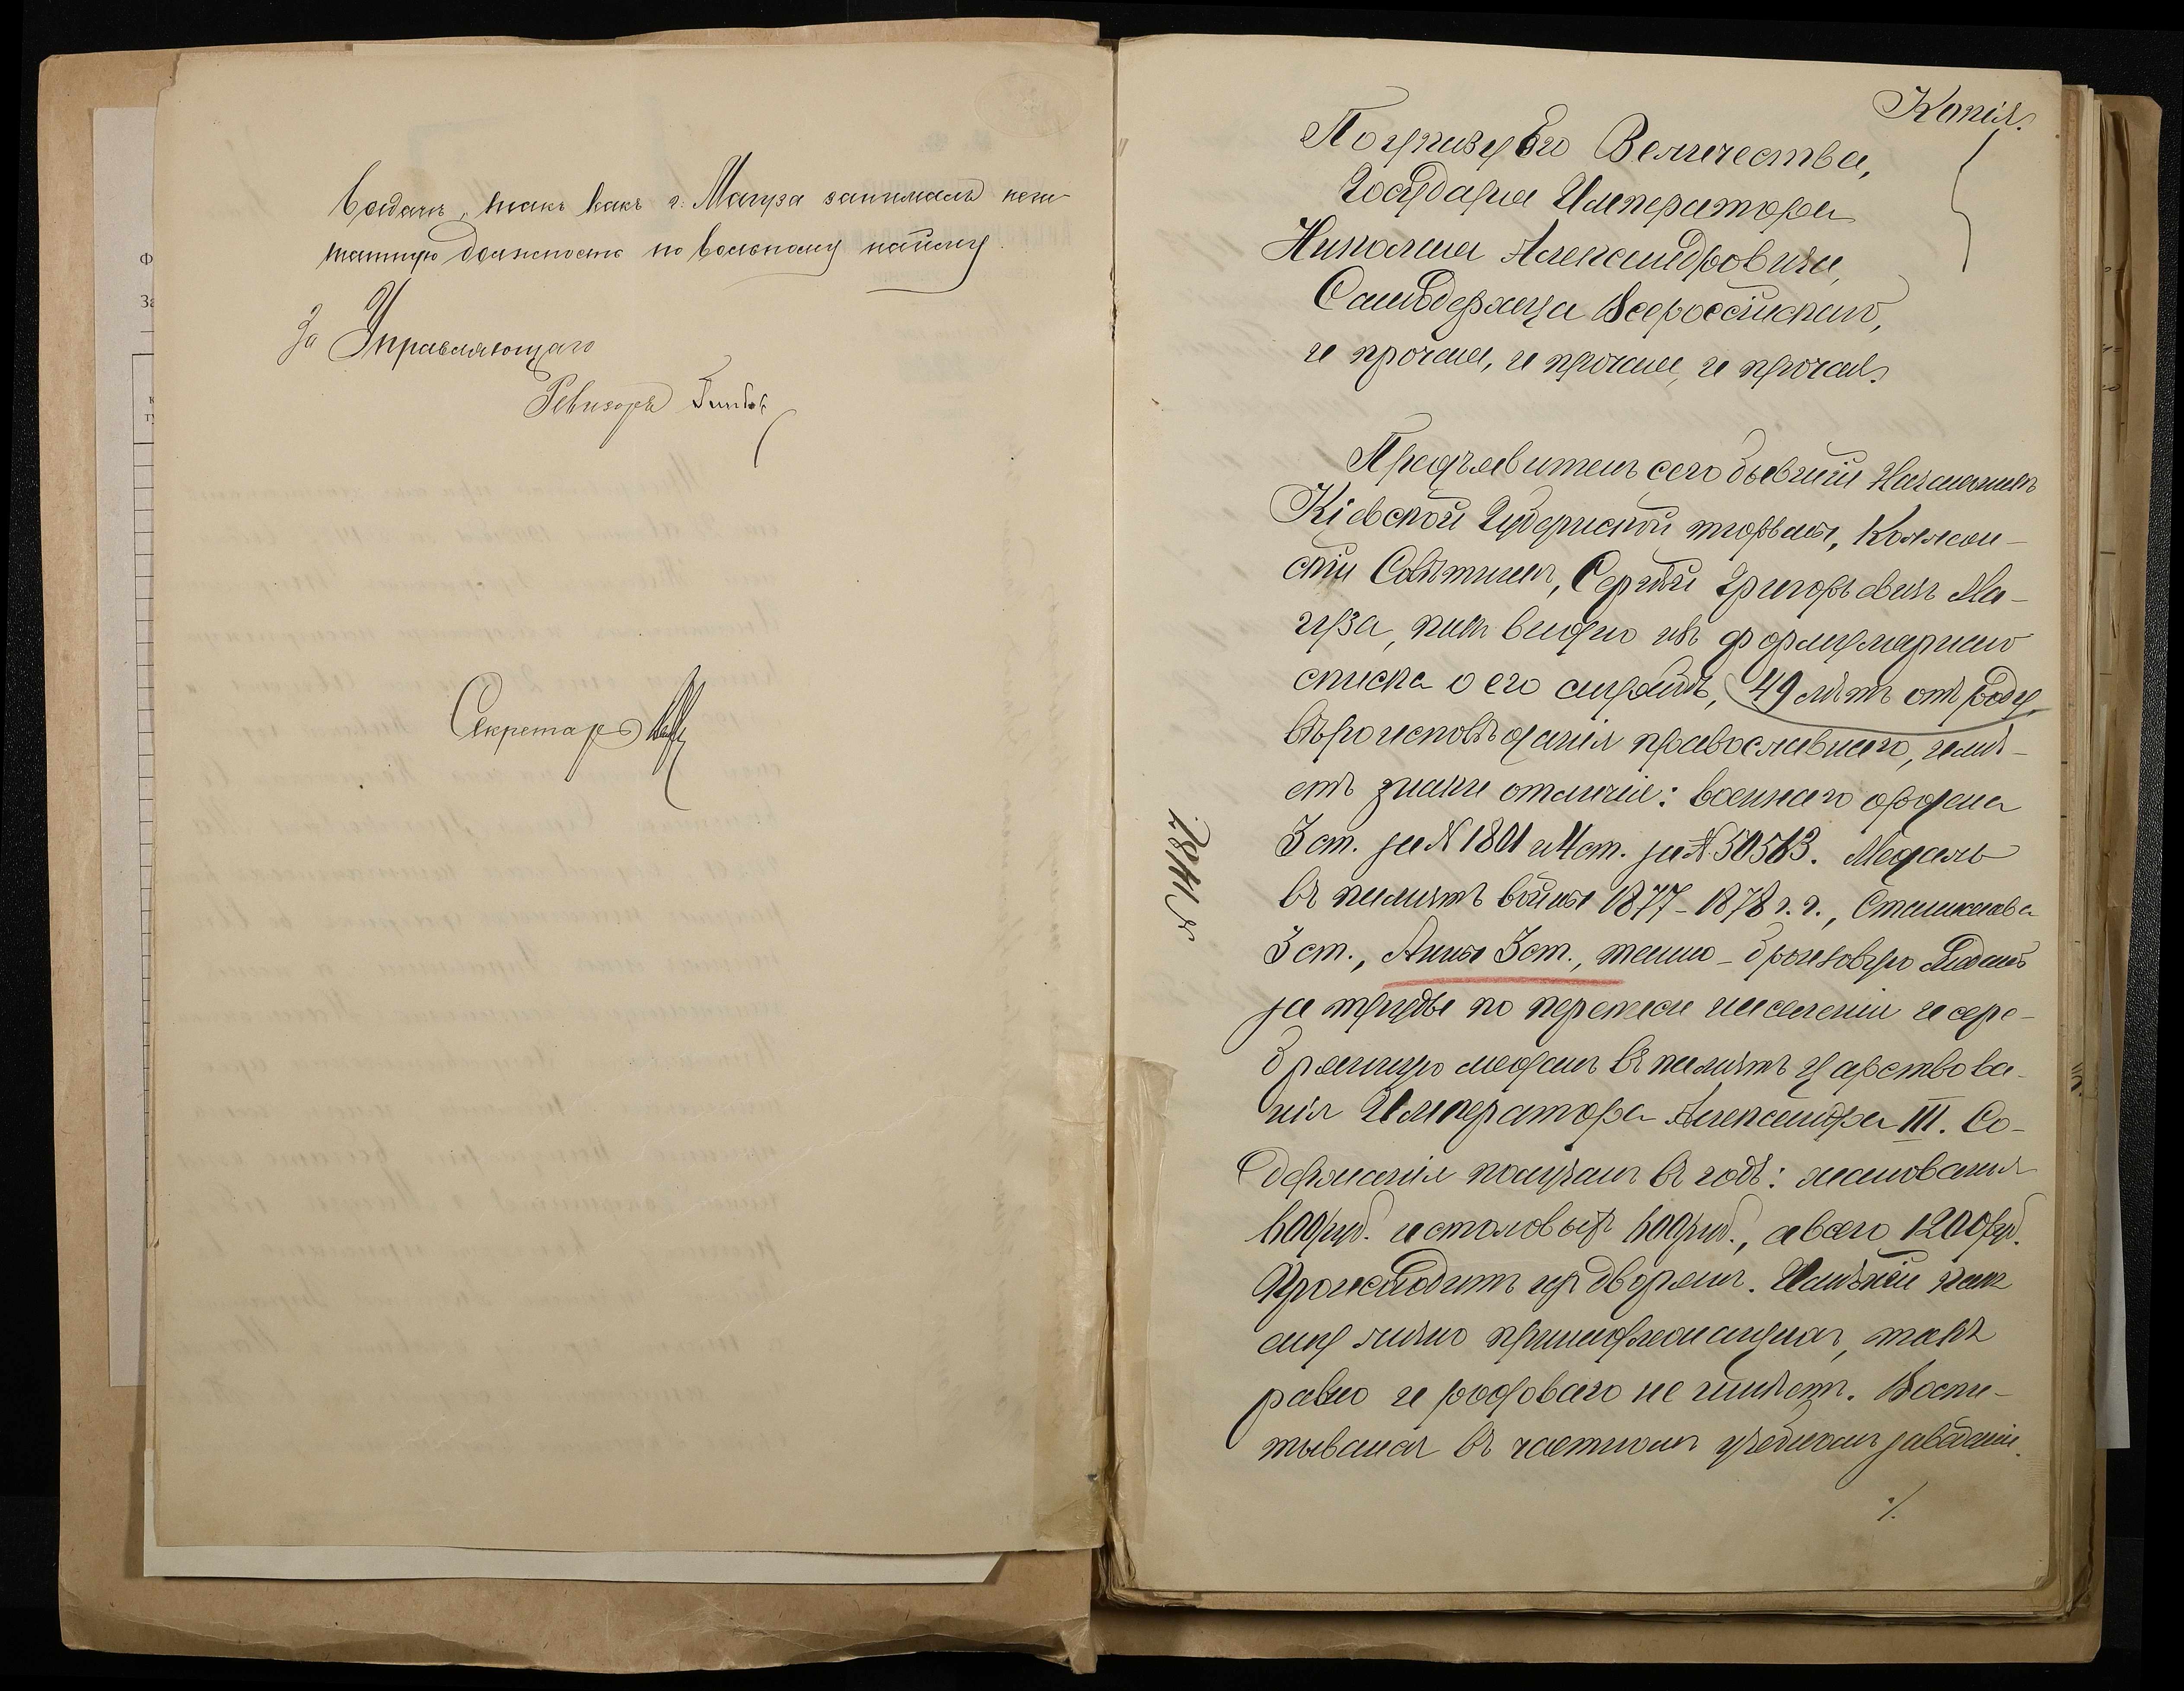 выдачъ, такъ какъ г. Магуза занималъ неш-
татную должность по вольному найму.
За Управляющаго
Ревизоръ
Секретарь
Копія.
По указу Его Величества,
Государя Императора
Николая Александровича,
Самодержца Всероссійскаго,
и прочая, и прочая, и прочая.
Предъявитель сего бывшій Начальникъ
Кіевской Губернской тюрьмы, Коллеж-
скій Совѣтникъ, Сергѣй Григорьевичъ Ма-
гуза, какъ видно изъ формулярнаго
списка о его службѣ, 49 лѣтъ отъ роду,
вѣроисповѣданія православнаго, имѣ-
етъ знаки отличія: военнаго ордена
3 ст. за № 1801 и 4 ст. за № 50583. Медаль
въ память войны 1877-1878 г.г., Станислава
3 ст., Анны 3 ст., темно-бронзовую медаль
за труды по переписи населенія и сере-
бряную медаль въ память царствова-
нія Императора Александра III. Со-
держанія получалъ въ годъ: жалованья
600 руб. и столовыхъ 600 руб., а всего 1200 руб.
Происходитъ изъ дворянъ. Имѣнія какъ
ему лично принадлежащаго, такъ
равно и родоваго не имѣетъ. Воспи-
тывался въ частномъ учебномъ заведеніи.
./.